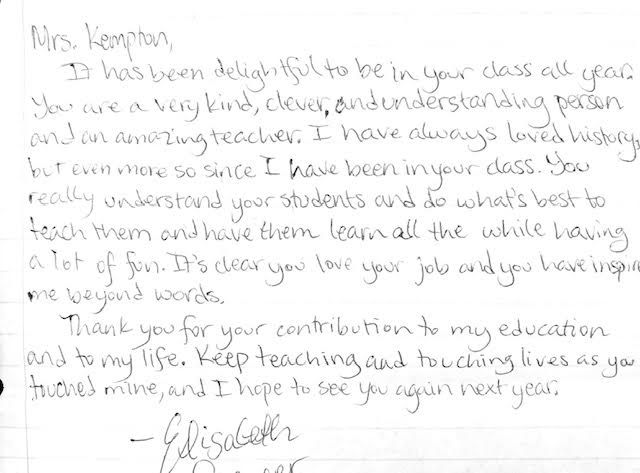 Mrs. Kempton,
It has been delightful to be in your class all year.
You are a very kind, clever, and understanding person
and an amazing teacher. I have always loved history,
but even more so since I have been in your class. You
really understand your students and do what's best to
teach them and have them learn all the while having
a lot of fun. It's clear you love your job and you have inspire
me beyond words.
Thank you for your contribution to my education
and to my life. Keep teaching and touching lives as you
touched mine, and I hope to see you again next year.
- Elisabeth